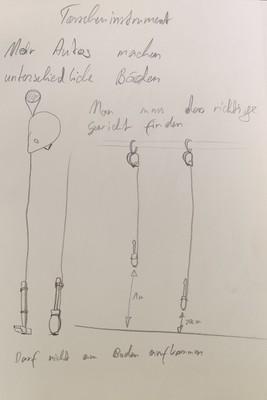 Tascheninstrument
Mehr Autos machen
unterschiedliche Böden
Man muss das richtige
Gewicht finden
1m
20cm
Darf nicht am Boden aufkommen